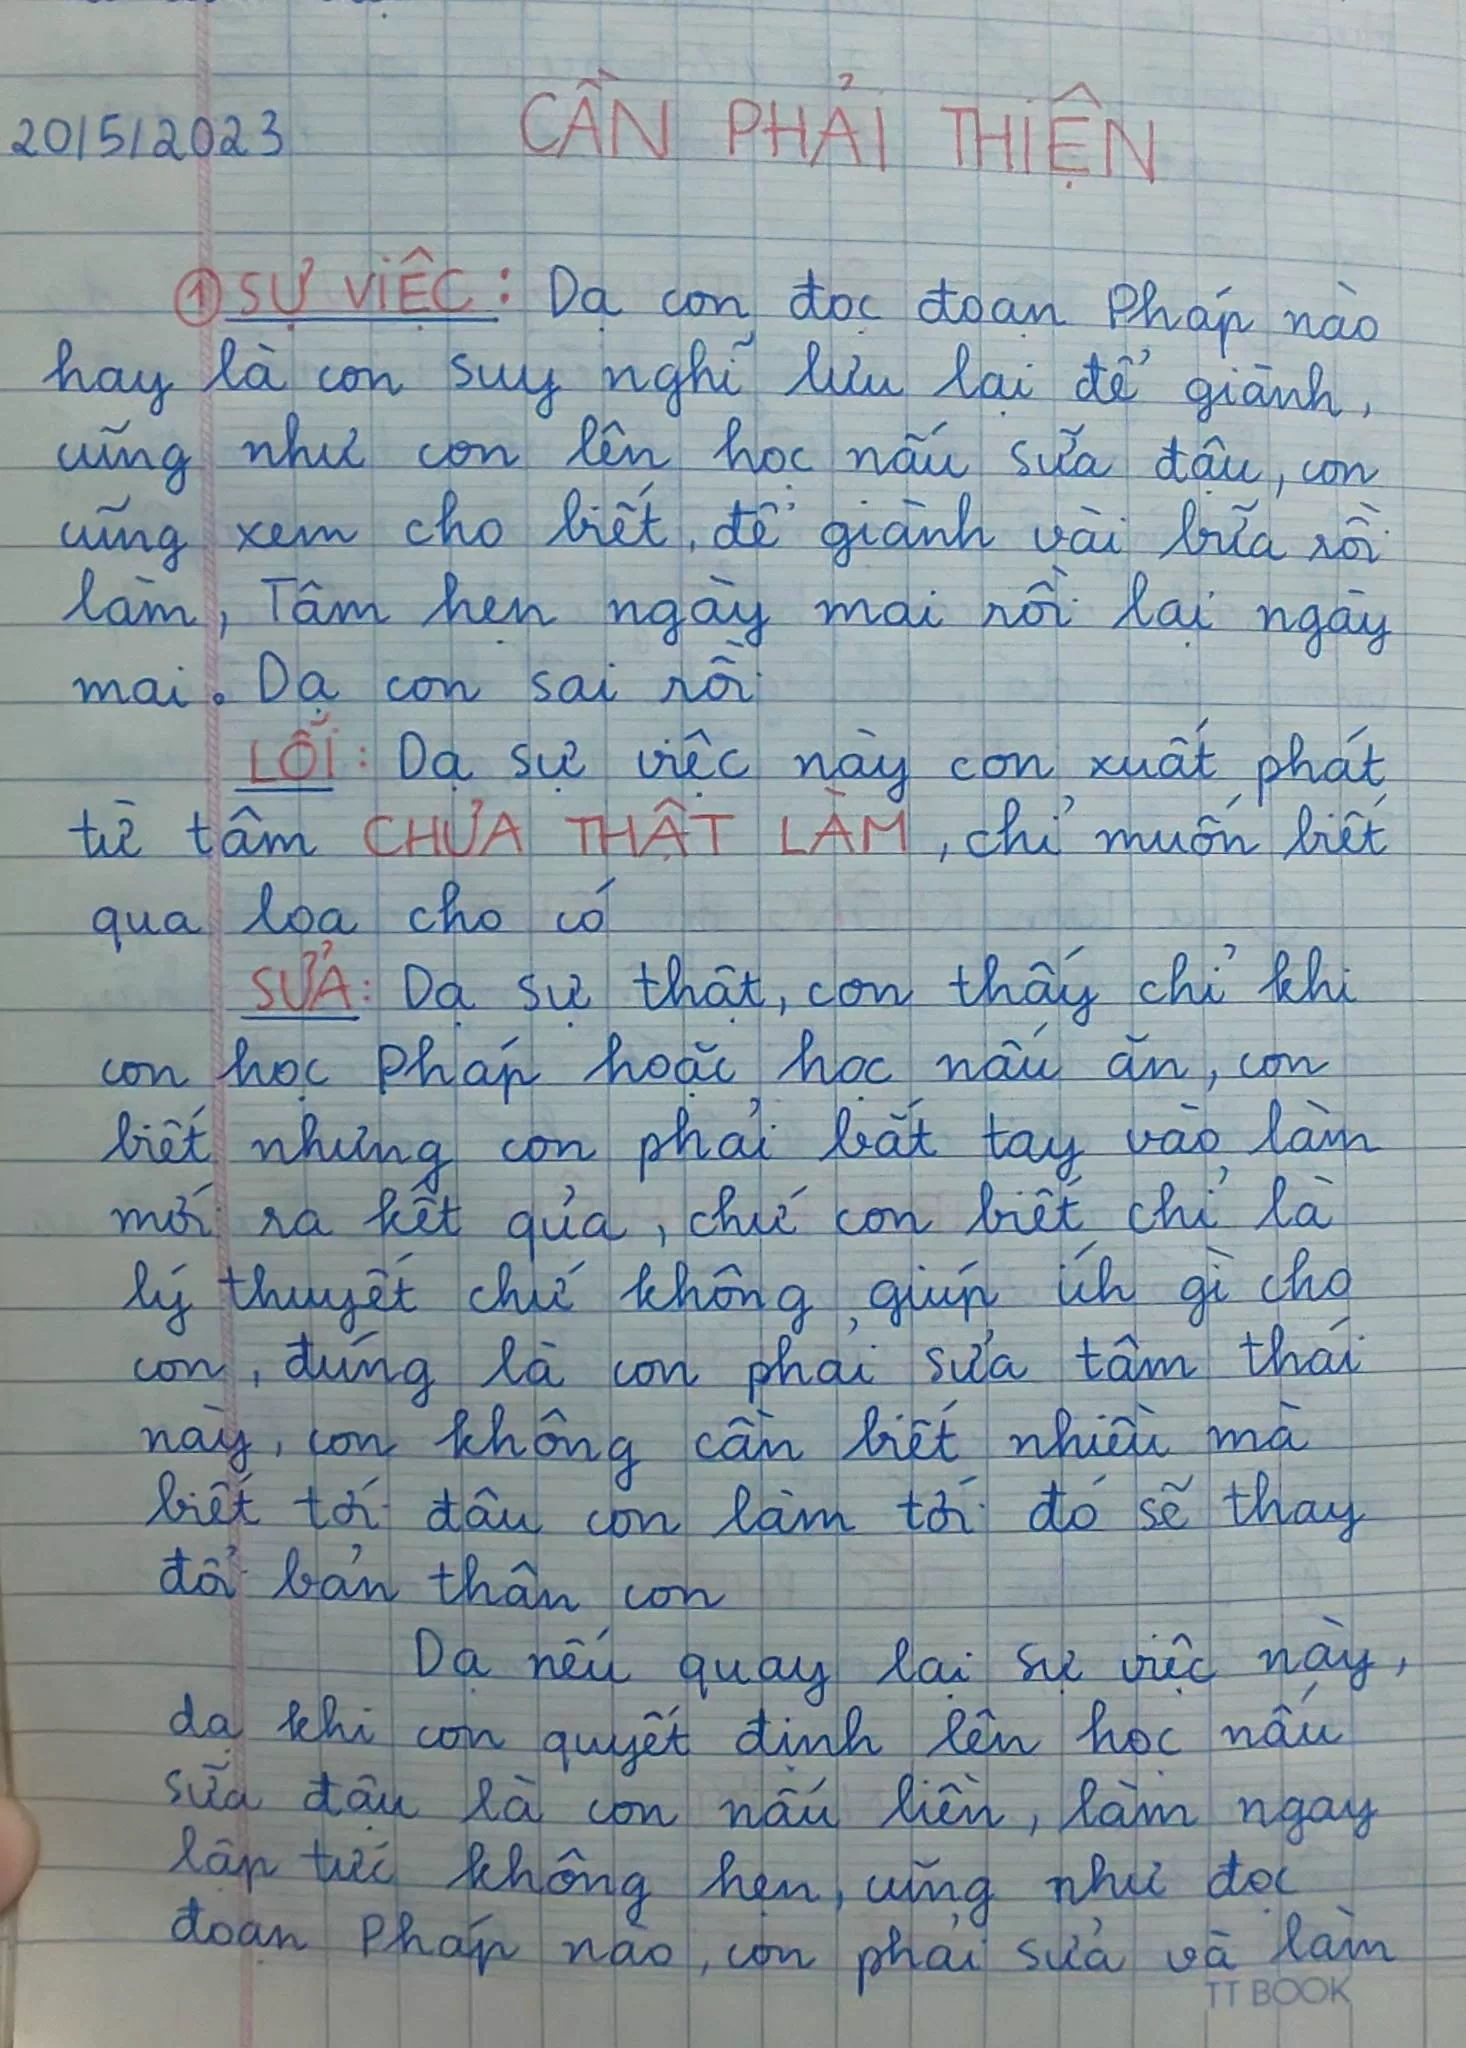 20/5/2023 CẦN PHẢI THIỆN
① SỰ VIỆC: Dạ con đọc đoạn Pháp nào
hay là con suy nghĩ lưu lại để giành,
cũng như con lên học nấu sữa đậu, con
cũng xem cho biết, để giành vài bữa rồi
làm, Tâm hẹn ngày mai rồi lại ngày
mai. Dạ con sai rồi
LỖI: Dạ sự việc này con xuất phát
từ tâm CHƯA THẬT LÀM, chỉ muốn biết
qua loa cho có
SỬA: Dạ sự thật, con thấy chỉ khi
con học Pháp hoặc học nấu ăn, con
biết nhưng con phải bắt tay vào làm
mới ra kết qủa, chứ con biết chỉ là
lý thuyết chứ không giúp ích gì cho
con, đúng là con phải sửa tâm thái
này, con không cần biết nhiều mà
biết tới đâu con làm tới đó sẽ thay
đổi bản thân con
Dạ nếu quay lại sự việc này,
dạ khi con quyết định lên học nấu
sữa đậu là con nấu liền, làm ngay
lập tức không hẹn, cũng như đọc
đoạn Pháp nào, con phải sửa và làm
TT BOOK